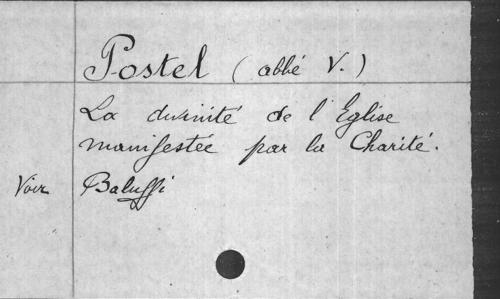 Postel (abbé V.)
La divinité de l'Eglise
manifestée par la Charité.
Voir Baluffi